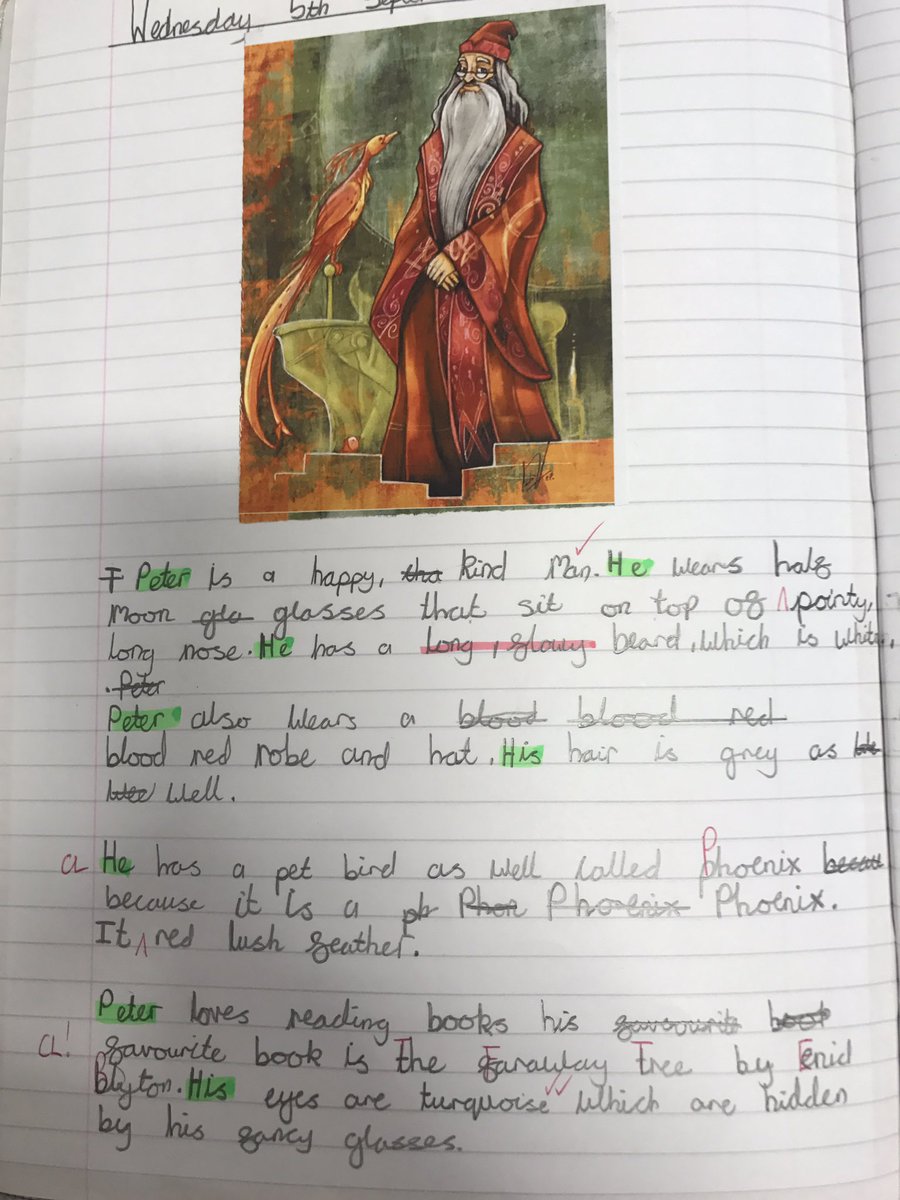 Wednesday 5th Sept
Peter is a happy, tha kind Man. He wears half
Moon gla glasses that sit on top of pointy,
long nose. He has a long, flowy beard, which is white.
. Peter
Peter also wears a blood blood red
blood red robe and hat. His hair is grey as
well.
a He has a pet bird as well called Phoenix
because it is a ph Phon Phoenix Phoenix.
It red lush feather.
Peter loves reading books his favourite book
a! favourite book is The Faraway Tree by Enid
Blyton. His eyes are turquoise which are hidden
by his fancy glasses.